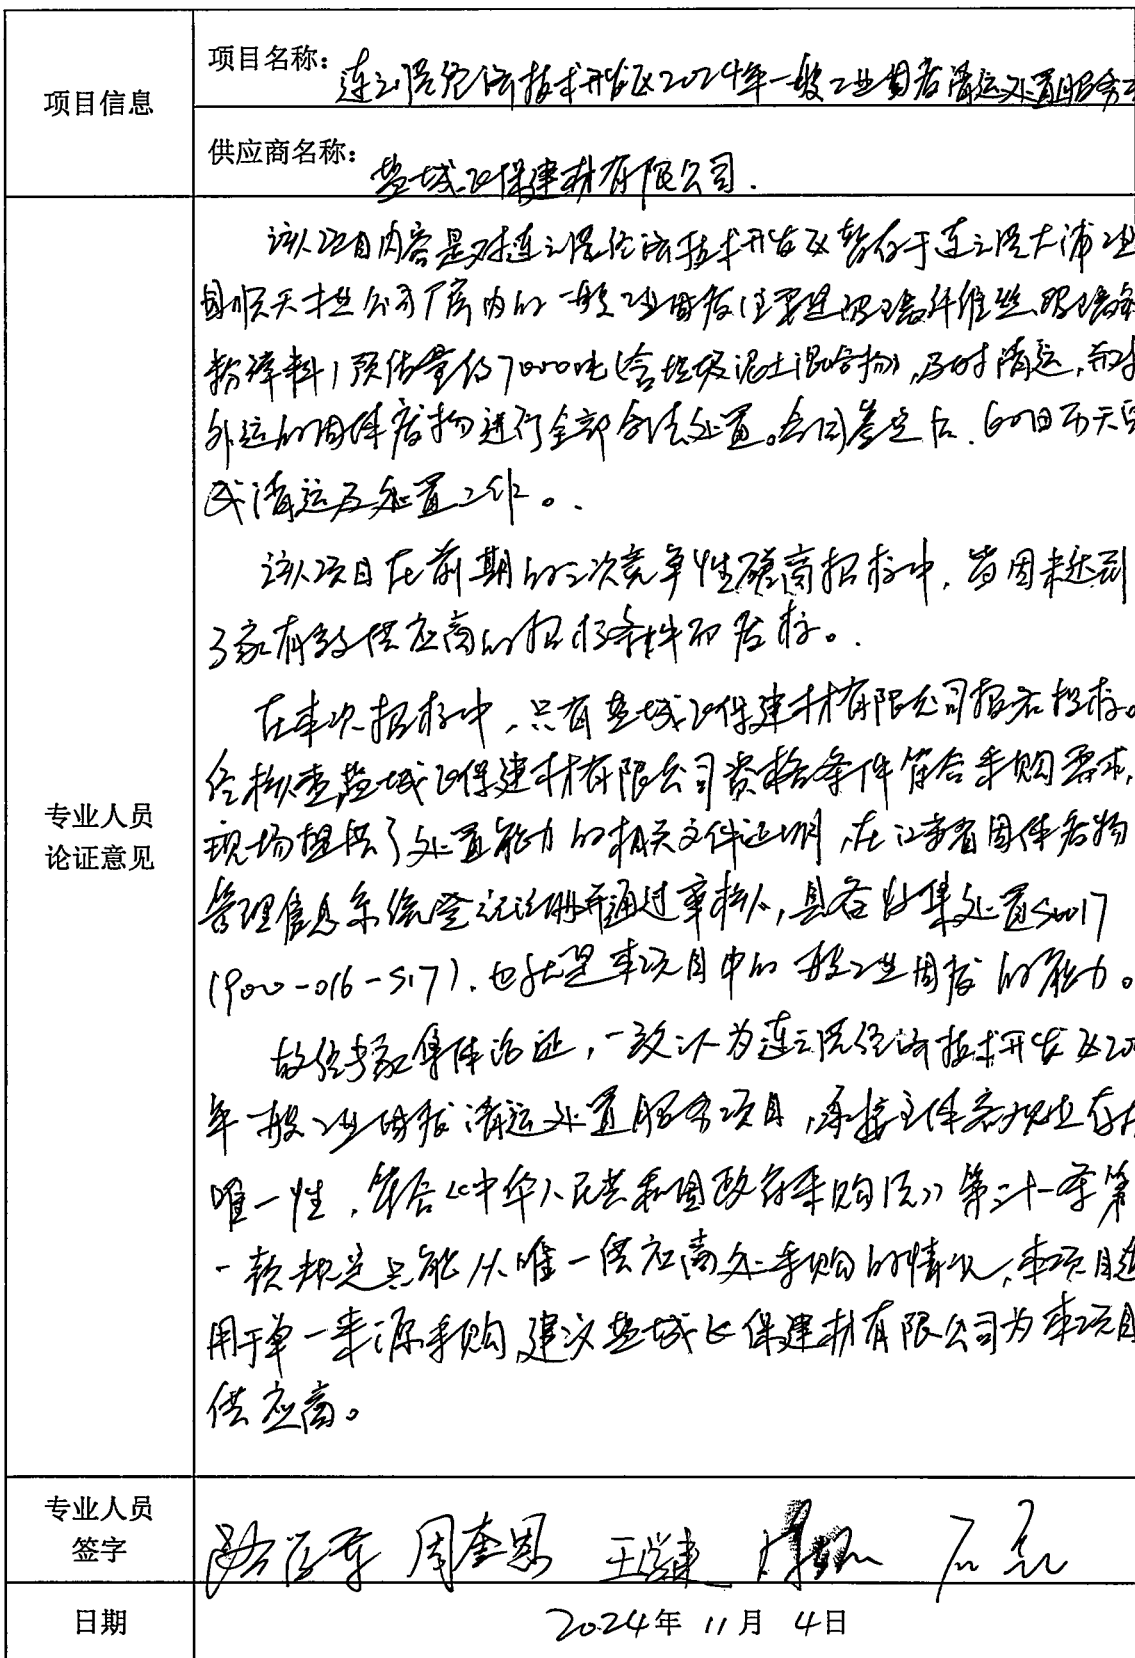 项目信息
项目名称：连云港经济技术开发区2024年一般工业固废清运处置服务
供应商名称：盐城 保建材有限公司.
专业人员
论证意见
该项目内容是对连云港经济技术开发区暂存于连云港大浦工业
园顺天 公司厂房内的一般工业固废(主要是玻璃纤维丝、玻璃
粉碎料)预估量约7000吨(含垃圾泥土混合物),及时清运,并对
外运的固体废物进行全部合法处置。合同签定后,60日历天完
成清运及处置工作。
该项目在前期的二次竞争性磋商招标中,皆因未达到
3家有效供应商的招标条件而废标。
在本次招标中,只有盐城 保建材有限公司报名投标。
经核查,盐城 保建材有限公司资格条件符合采购需求,
现场提供了处置能力的相关文件证明,在江苏省固体废物
管理信息系统登记注册并通过审核,具备收集处置SW17
(900-016-S17).也就是本项目中的一般工业固废的能力。
故经专家集体论证,一致认为连云港经济技术开发区20
年一般工业固废清运处置服务项目,承接主体客观上存在
唯一性,符合《中华人民共和国政府采购法》第三十一条第
一款规定只能从唯一供应商处采购的情况,本项目适
用于单一来源采购,建议盐城 保建材有限公司为本项目
供应商。
专业人员
签字
周奎恩 王学建
日期
2024年 11月 4日